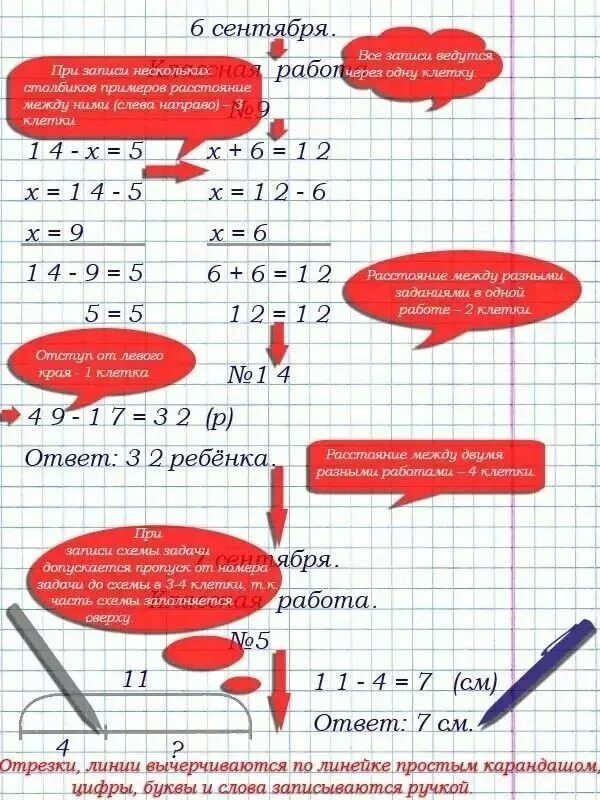 6 сентября.
Все записи ведутся
через одну клетку.
Классная работа
При записи нескольких
столбиков примеров расстояние
между ними (слева направо) – 3
клетки.
№9
14 - х = 5 х + 6 = 12
х = 14 - 5 х = 12 - 6
х = 9 х = 6
14 - 9 = 5 6 + 6 = 12
5 = 5 12 = 12
Расстояние между разными
заданиями в одной
работе – 2 клетки.
Отступ от левого
края - 1 клетка
№14
49 - 17 = 32 (р)
Ответ: 32 ребёнка.
Расстояние между двумя
разными работами – 4 клетки.
При
записи схемы задачи
допускается пропуск от номера
задачи до схемы в 3-4 клетки, т.к.
часть схемы заполняется
сверху.
7 сентября.
Классная работа.
№5
11
11 - 4 = 7 (см)
Ответ: 7 см.
4 ?
Отрезки, линии вычерчиваются по линейке простым карандашом,
цифры, буквы и слова записываются ручкой.